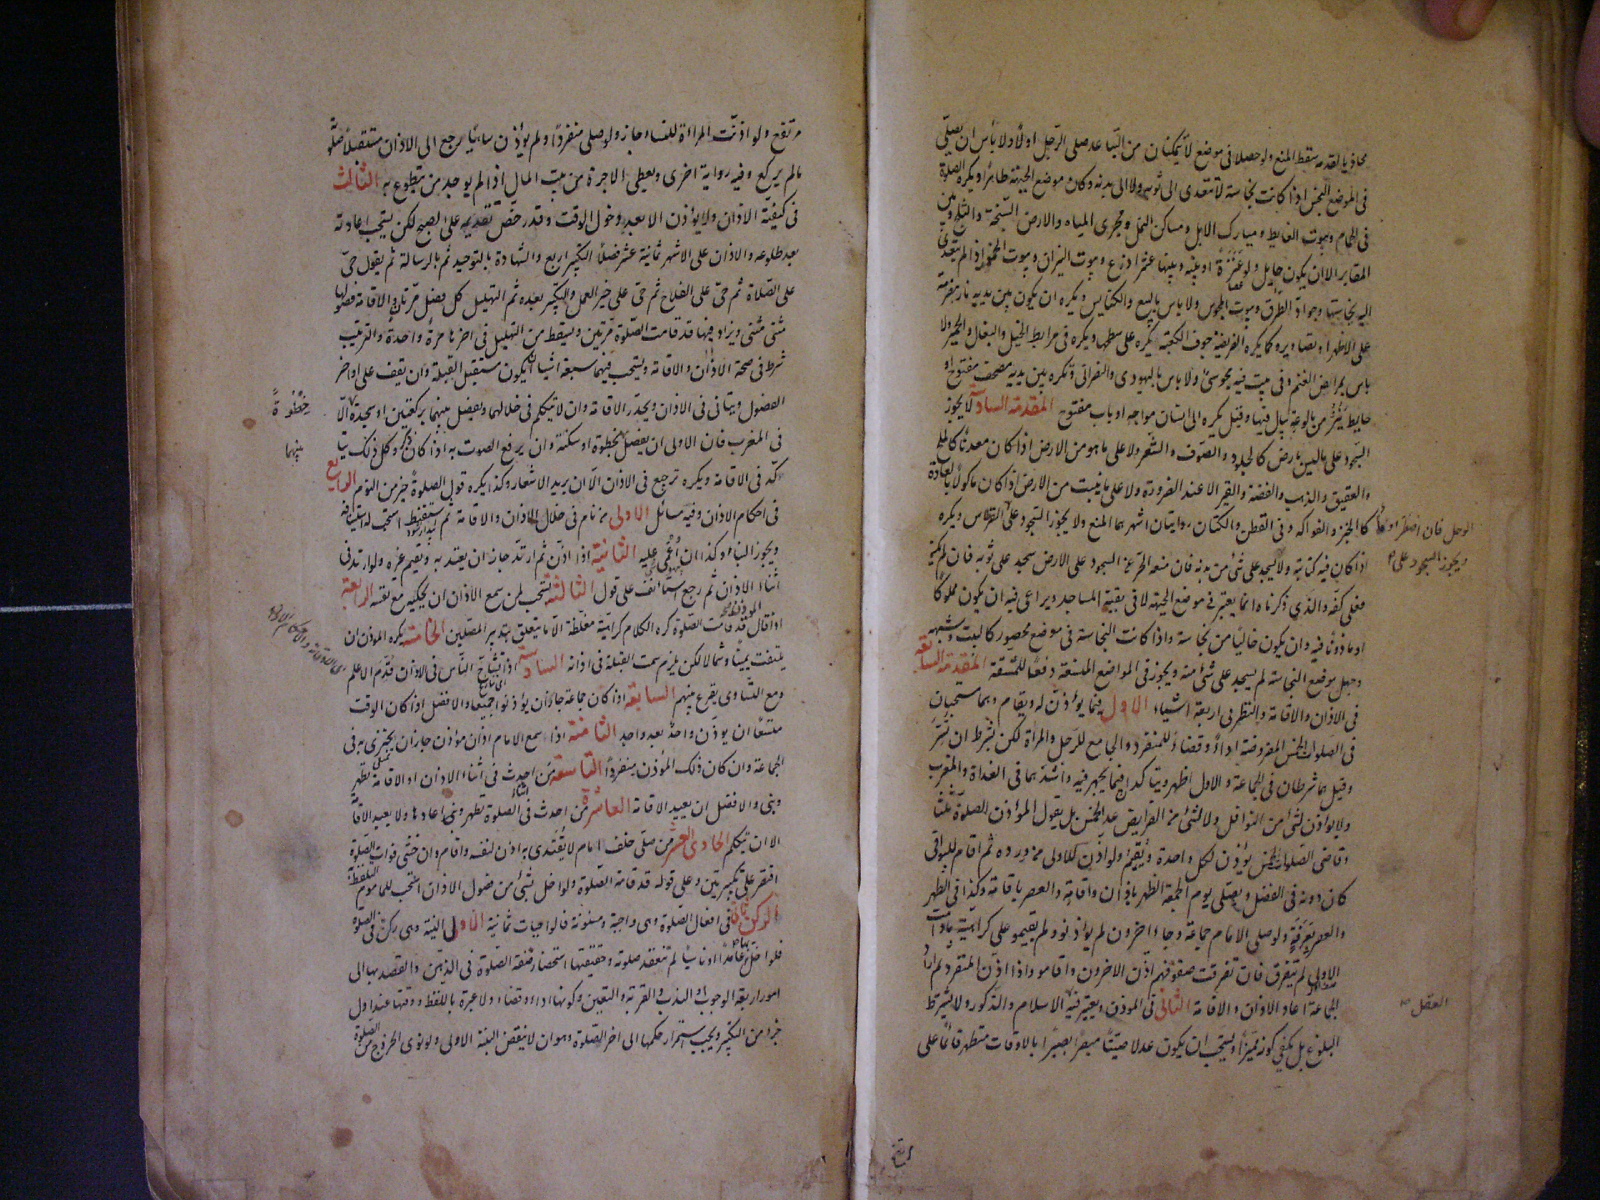 محاذيا لقدمه سقط المنع ولو حصلا في موضع لا يمكنان من التباعد صلى الرجل اولا ولا باس ان يصلي
في الموضع النجس اذا كانت نجاسة لا تتعدى الى ثوبه ولا الى بدنه وكان موضع الجبهة طاهرا ويكره الصلوة
في الحمام وبيوت الغايط ومبارك الابل ومساكن النمل ومجرى المياه والارض السبخة والثلج وبين
المقابر الا ان يكون حايل ولو عنزة او بينه وبينها عشر اذرع وبيوت النيران وبيوت الخمور اذا لم تتعد
اليه نجاستها وجواد الطرق وبيوت المجوس ولا باس بالبيع والكنايس ويكره ان يكون بين يديه نار مضرمة
على الاظهر او تصاوير وكما يكره الفريضة جوف الكعبة يكره على سطحها ويكره في مرابط الخيل والبغال والحمير ولا
باس بمرابض الغنم وفي بيت فيه مجوسي ولا باس باليهودي والنصراني ويكره بين يديه مصحف مفتوح او
حايط ينز من بالوعة يبال فيها وقيل يكره الى انسان مواجه او باب مفتوح المقدمة السادسة لا يجوز
السجود على ما ليس بارض كالجلود والصوف والشعر ولا على ما هو من الارض اذا كان معدنا كالملح
والعقيق والذهب والفضة والقير الا عند الضرورة ولا على ما ينبت من الارض اذا كان ماكولا بالعادة
كالخبز والفواكه وفي القطن والكتان روايتان اشهرهما المنع ولا يجوز السجود على القرطاس ويكره
اذا كان فيه كتابة ولا يسجد على شئ من بدنه فان منعه الحر عن السجود على الارض سجد على ثوبه فان لم يمكنه
فعلى كفه والذي ذكرناه انما يعتبر في موضع الجبهة لا في بقية المساجد ويراعى فيه ان يكون مملوكا
او ماذونا فيه وان يكون خاليا من نجاسة واذا كانت النجاسة في موضع محصور كالبيت وشبهه
وجهل موضع النجاسة لم يسجد على شئ منه ويجوز في المواضع المتسعة دفعا للمشقة المقدمة السابعة
في الاذان والاقامة والنظر في اربعة اشياء الاول فيما يؤذن له ويقام وهما مستحبان
في الصلوات الخمس المفروضة اداء وقضاء للمنفرد والجامع للرجل والمراة لكن يشترط ان تستر
وقيل هما شرطان في الجماعة والاول اظهر ويتاكدان فيما يجهر فيه واشدهما في الغداة والمغرب
ولا يؤذن لشئ من النوافل ولا لشئ من الفرايض عدا الخمس بل يقول المؤذن الصلوة ثلثا
وقاضي الصلوات الخمس يؤذن لكل واحدة ويقيم ولو اذن للاولى من ورده ثم اقام للبواقي
كان دونه في الفضل ويصلي يوم الجمعة الظهر باذان واقامة والعصر باقامة وكذا في الظهر
والعصر بعرفة ولو صلى الامام جماعة وجاء اخرون لم يؤذنوا ولم يقيموا على كراهية ما دامت
الاولى لم تتفرق فان تفرقت صفوفهم اذن الاخرون واقاموا واذا اذن المنفرد ثم اراد
الجماعة اعاد الاذان والاقامة الثاني في المؤذن ويعتبر فيه الاسلام والذكورة ولا يشترط
البلوغ بل يكفي كونه مميزا ويستحب ان يكون عدلا صيتا مبصرا بصيرا بالاوقات متطهرا قائما على
الوحل فان اضطر اومأ
ويجوز السجود على
العقل صح
مرتفع ولو اذنت المراة للنساء جاز ولو صلى منفردا ولم يؤذن ساهيا رجع الى الاذان مستقبلا صلوته
ما لم يركع وفيه رواية اخرى ويعطى الاجرة من بيت المال اذا لم يوجد من يتطوع به الثالث
في كيفية الاذان ولا يؤذن الا بعد دخول الوقت وقد رخص تقديمه على الصبح لكن يستحب اعادته
بعد طلوعه والاذان على الاشهر ثمانية عشر فصلا التكبير اربع والشهادة بالتوحيد ثم بالرسالة ثم يقول حي
على الصلاة ثم حي على الفلاح ثم حي على خير العمل والتكبير بعده ثم التهليل كل فصل مرتان والاقامة فصولها
مثنى مثنى ويزاد فيها قد قامت الصلوة مرتين ويسقط من التهليل في اخرها مرة واحدة والترتيب
شرط في صحة الاذان والاقامة ويستحب فيهما سبعة اشياء ان يكون مستقبل القبلة وان يقف على اواخر
الفصول ويتانى في الاذان ويحدر الاقامة وان لا يتكلم في خلالهما ويفصل بينهما بركعتين او سجدة الا
في المغرب فان الاولى ان يفصل بخطوة او سكتة وان يرفع الصوت به اذا كان ذكرا وكل ذلك يتا
كد في الاقامة ويكره ترجيع في الاذان الا ان يريد الاشعار وكذا يكره قول الصلوة خير من النوم الرابع
في احكام الاذان وفيه مسائل الاولى من نام في خلال الاذان والاقامة ثم استيقظ استحب له استينافه
ويجوز البناء وكذا ان اغمي عليه الثانية اذا اذن ثم ارتد جاز ان يعتد به ويقيم غيره ولو ارتد في
اثناء الاذان ثم رجع استانف على قول الثالثة يستحب لمن سمع الاذان ان يحكيه مع نفسه الرابعة
اذا قال المؤذن قد قامت الصلوة كره الكلام كراهية مغلظة الا ما يتعلق بتدبير المصلين الخامسة يكره للمؤذن ان
يلتفت يمينا وشمالا لكن يلزم سمت القبلة في اذانه السادسة اذا تشاح الناس في الاذان قدم الاعلم
ومع التساوي يقرع بينهم السابعة اذا كان جماعة جاز ان يؤذنوا جميعا والافضل اذا كان الوقت
متسعا ان يؤذن واحد بعد واحد الثامنة اذا سمع الامام اذان مؤذن جاز ان يجتزى به في
الجماعة وان كان ذلك المؤذن منفردا التاسعة من احدث في اثناء الاذان او الاقامة تطهر
وبنى والافضل ان يعيد الاقامة العاشرة من احدث في الصلوة تطهر واعادها ولا يعيد الاقامة
الا ان تكلم الحادي العشر من صلى خلف امام لا يقتدى به اذن لنفسه واقام وان خشي فوات الصلوة
اقتصر على تكبيرتين وعلى قوله قد قامت الصلوة ولو اخل بشئ من فصول الاذان استحب للماموم التلفظ به
الركن الثاني في افعال الصلوة وهي واجبة ومسنونة فالواجبات ثمانية الاول النية وهي ركن في الصلوة
فلو اخل بها عامدا او ناسيا لم تنعقد صلوته وحقيقتها استحضار صفة الصلوة في الذهن والقصد بها الى
امور اربعة الوجوب او الندب والقربة والتعيين وكونها اداء او قضاء ولا عبرة باللفظ ووقتها عند اول
جزء من التكبير ويجب استمرار حكمها الى اخر الصلوة وهو ان لا ينقض النية الاولى ولو نوى الخروج من الصلوة
خطوة
بينهما